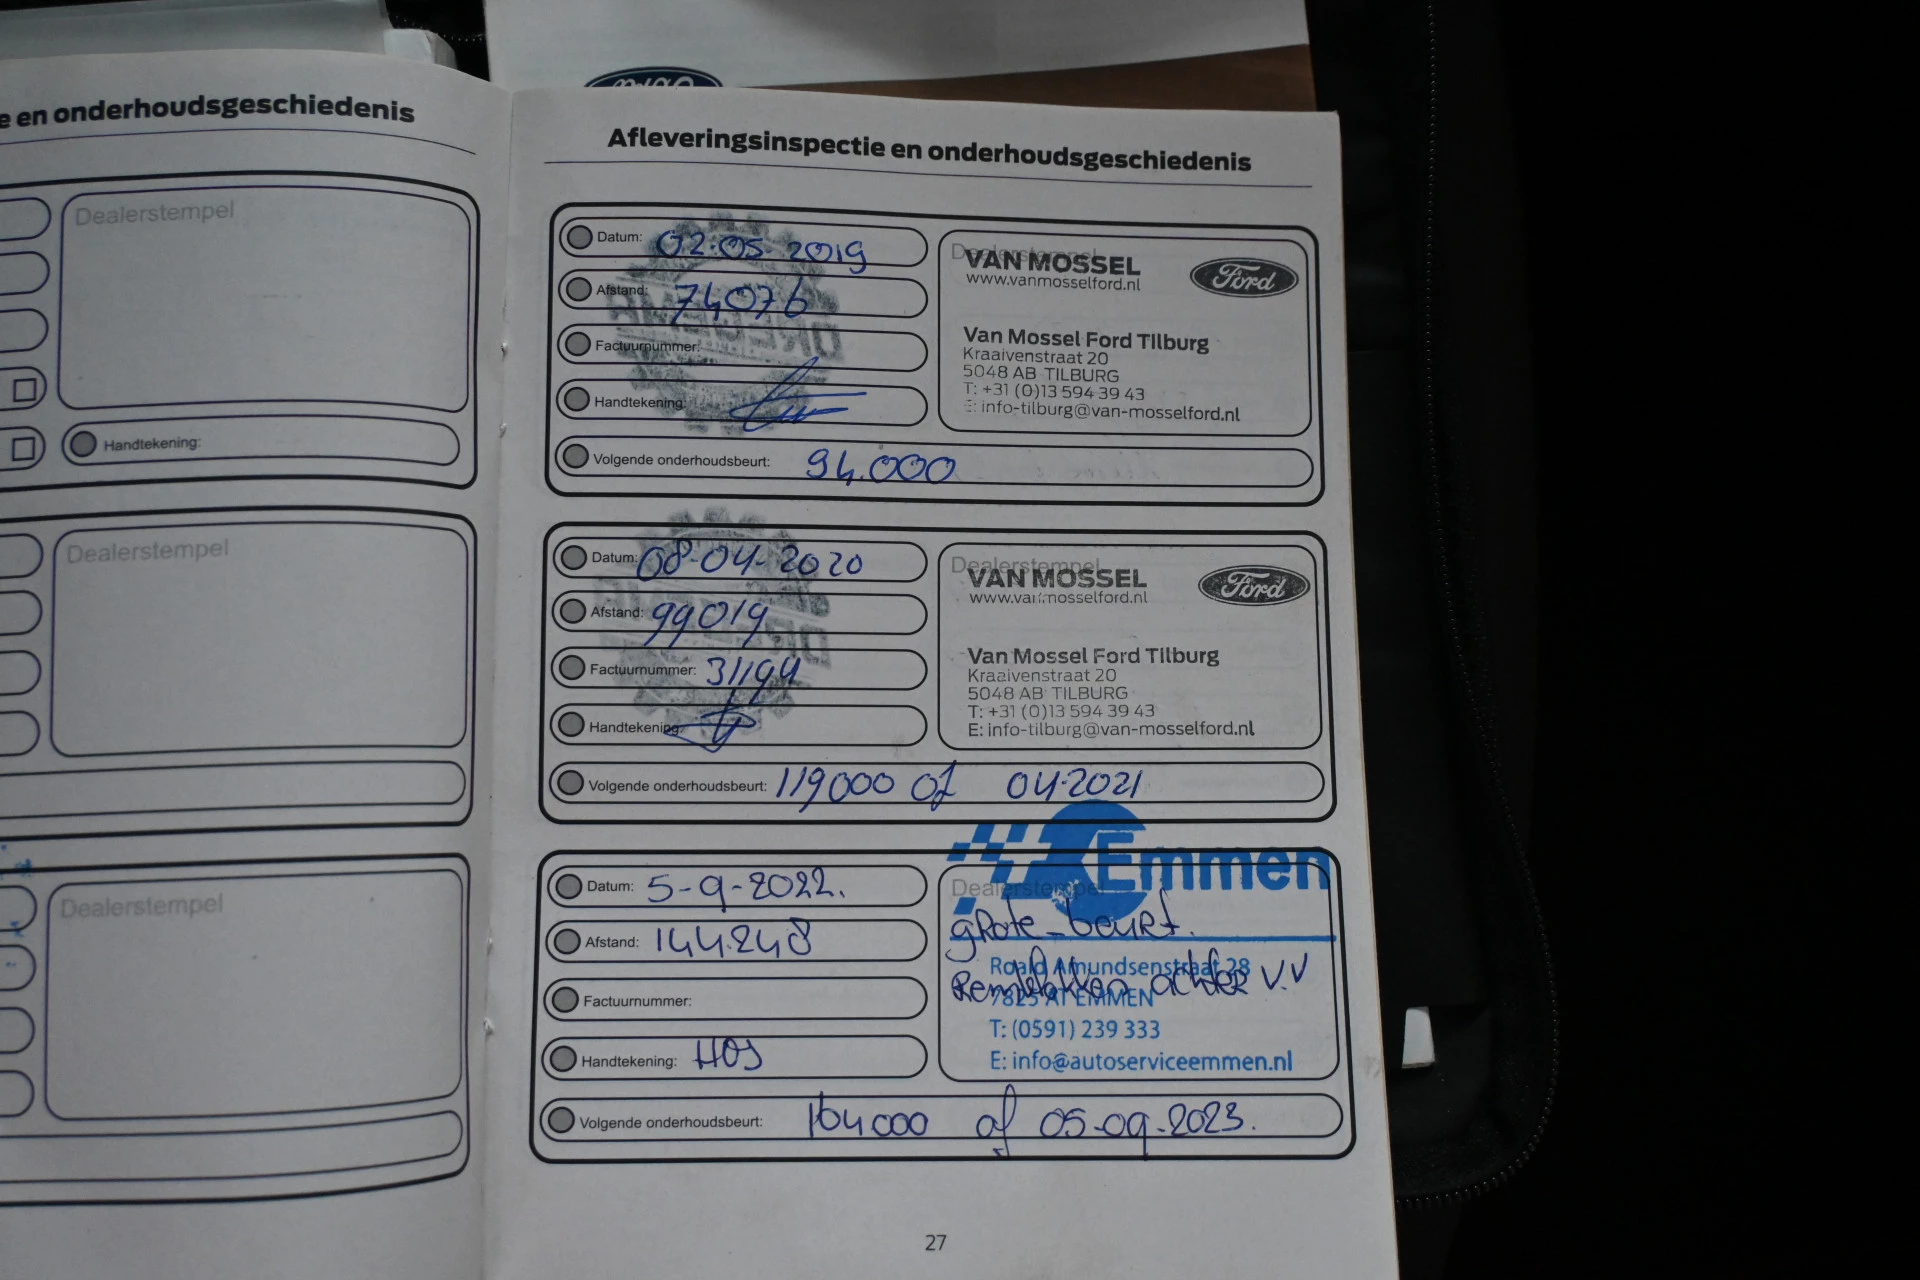 e en onderhoudsgeschiedenis
Dealerstempel
Handtekening:
Dealerstempel
Dealerstempel
Afleveringsinspectie en onderhoudsgeschiedenis
Datum: 02-05-2019
Afstand: 74076
Factuurnummer:
Handtekening:
Volgende onderhoudsbeurt: 94.000
Dealerstempel
VAN MOSSEL
www.vanmosselford.nl
Ford
Van Mossel Ford TIlburg
Kraaivenstraat 20
5048 AB TILBURG
T: +31 (0)13 594 39 43
E: info-tilburg@van-mosselford.nl
Datum: 08-04-2020
Afstand: 99019
Factuurnummer: 31194
Handtekening:
Volgende onderhoudsbeurt: 119000 of 04-2021
Dealerstempel
VAN MOSSEL
www.vanmosselford.nl
Ford
Van Mossel Ford Tilburg
Kraaivenstraat 20
5048 AB TILBURG
T: +31 (0)13 594 39 43
E: info-tilburg@van-mosselford.nl
Datum: 5-9-2022.
Afstand: 144.248
Factuurnummer:
Handtekening: HOS
Volgende onderhoudsbeurt: 164000 of 05-09-2023.
Emmen
Dealerstempel
grote beurt.
Roald Amundsenstraat 28
Remblokken achter V.V
7825 AT EMMEN
T: (0591) 239 333
E: info@autoserviceemmen.nl
27